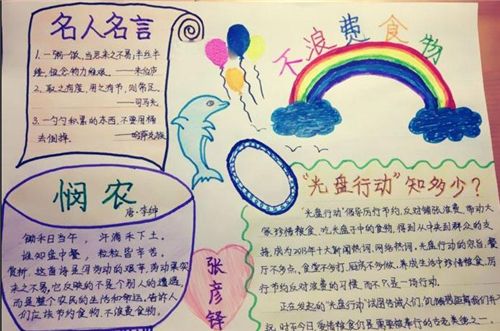 名人名言
1. 一粥一饭,当思来之不易;半丝半
缕,恒念物力维艰。——朱伯庐
2. 取之有度,用之有节,则常足。
——司马光
3. 一勺勺积累的东西,不要用桶
去倒掉。
不浪费食物
悯农
唐·李绅
锄禾日当午,汗滴禾下土。
谁知盘中餐,粒粒皆辛苦。
赏析:这首诗显浮劳动的艰辛,劳动果实
来之不易,它反映的不是个别人的遭遇,
而是整个农民的生活和命运。告诉人
们应该节约食物,不浪费食物。
张彦铎
“光盘行动”知多少?
“光盘行动”倡导厉行节约,反对铺张浪费,带动大
家珍惜粮食、吃光盘子中的食物,得到从中央到群众的支
持,成为2013年十大新闻热词、网络热词。光盘行动的宗旨:餐
厅不多点、食堂不多打、厨房不多做。养成生活中珍惜粮食、厉
行节约反对浪费的习惯,而不只是一场行动。
正在发起的“光盘行动”试图告诫人们,饥饿距离我们并